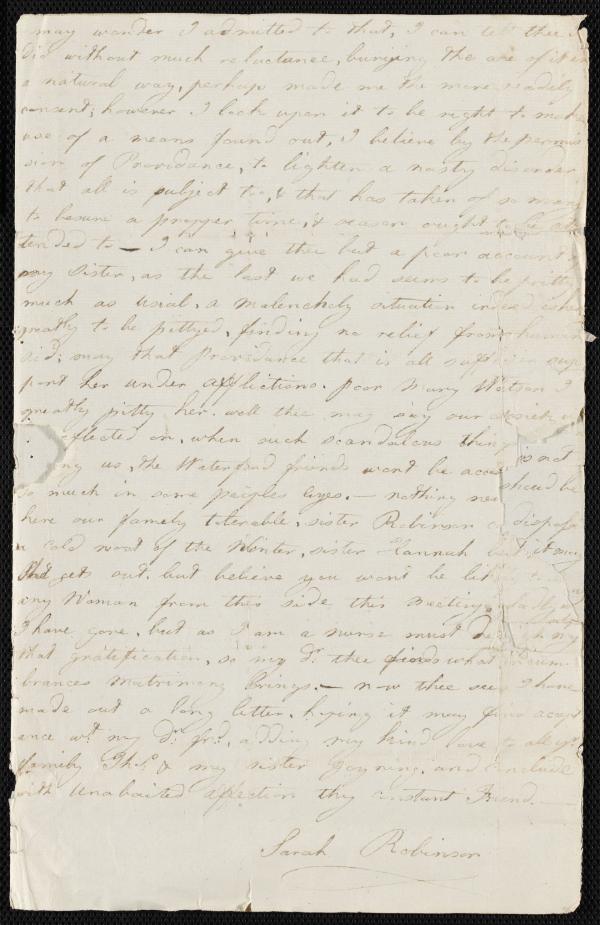 may wonder I admitted to that, I can tell thee I
did without much reluctance, burying the one of it in
a natural way, perhaps made me the more readily
consent; however I look upon it to be right to make
use of a means found out, I believe by the permis
sion of Providance, to lighten a nasty disorder
that all is subject to, & that has taken of so many
to besure a propper time, & season ought to be at
tended to — I can give thee but a poor account of
my Sister, as the last we had seems to be pritty
much as usial, a malencholy situation indeed
greatly to be pittyed, finding no relief from human
aid; may that Providance that is all sup
port her under afflictions. poor Mary Watson I
greatly pitty her. well thee may say our
eflected on, when such scandalous thing is not
us, the Waterford friends wont be
so much in some peoples Eyes. — nothing new should be
here our famely tolerable, sister Robinson dispos
a cold most of the Winter, sister Hannah but it may
She gets out. but believe you wont be
any Woman from this side this Meeting
I have gone, but as I am a nurse must my
that gratification, so my Dr. thee finds what incum
brances Matrimony brings. — now thee sees I have
made out a long letter, hoping it may find accept
ance wt. my Dr. frd. adding my kind love to all yr.
famely & my sister Joyning. and conclude
with Unabaited affection thy constant Friend. —
Sarah Robinson